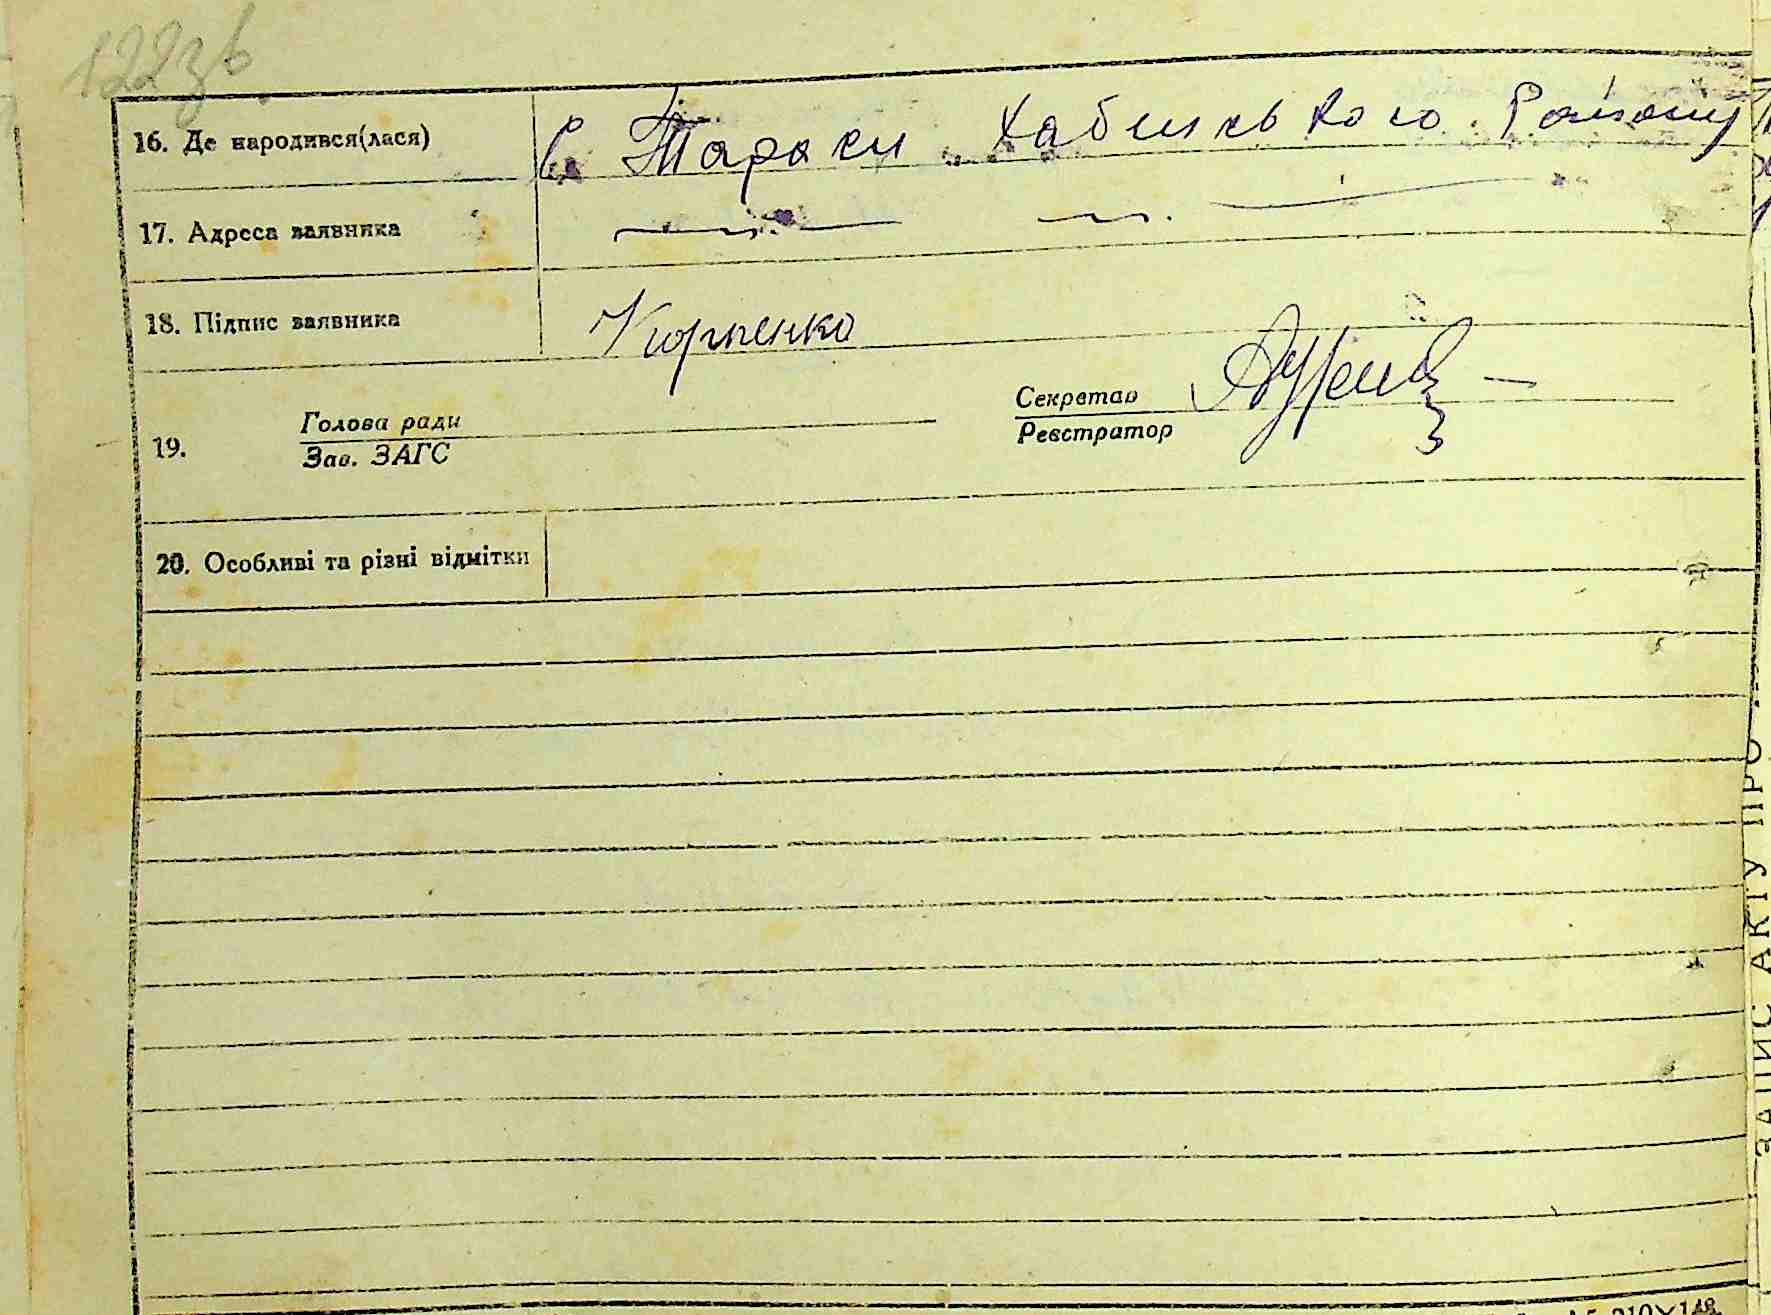 122зв
16. Де народився(лася) с. Тараси Хабенського Району
17. Адреса заявника — „ — — „ —
18. Підпис заявника Кирпенко
Голова ради Секретар
19.
Зав. ЗАГС Реєстратор
20. Особливі та різні відмітки
ЗАПИС АКТУ ПРО